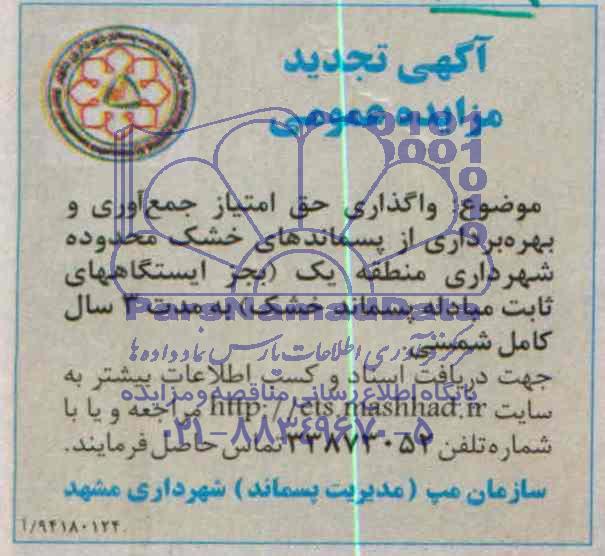 آگهی تجدید
مزایده عمومی
موضوع: واگذاری حق امتیاز جمع‌آوری و
بهره‌برداری از پسماندهای خشک محدوده
شهرداری منطقه یک (بجز ایستگاههای
ثابت مبادله پسماند خشک) به مدت ۳ سال
کامل شمسی
جهت دریافت اسناد و کسب اطلاعات بیشتر به
سایت http://ets.mashhad.ir مراجعه و یا با
شماره تلفن ۳۳۸۷۳۰۵۲ تماس حاصل فرمایند.
سازمان مپ (مدیریت پسماند) شهرداری مشهد
۹۴۱۸۰۱۲۴/آ
ParsNamadData
مرکز فن‌آوری اطلاعات پارس نماد داده‌ها
پایگاه اطلاع رسانی مناقصه و مزایده
۰۲۱-۸۸۳۴۹۶۷۰